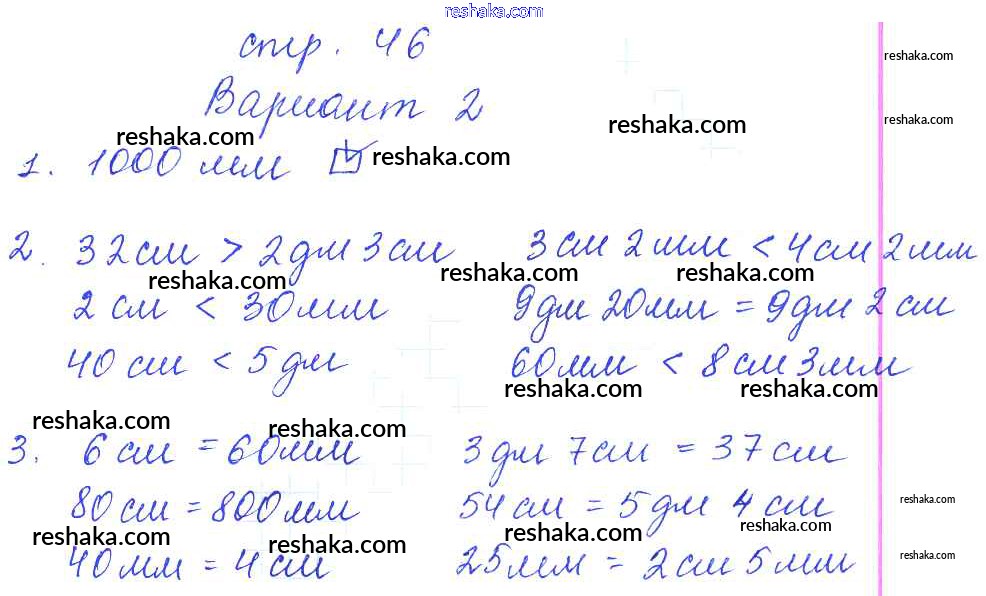 reshaka.com
стр. 46
reshaka.com
Вариант 2
reshaka.com reshaka.com reshaka.com
1. 1000 мм ☑ reshaka.com
2. 32 см > 2 дм 3 см 3 см 2 мм < 4 см 2 мм
reshaka.com reshaka.com reshaka.com
2 см < 30 мм 9 дм 20 мм = 9 дм 2 см
40 см < 5 дм 60 мм < 8 см 3 мм
reshaka.com reshaka.com
reshaka.com reshaka.com
3. 6 см = 60 мм 3 дм 7 см = 37 см
80 см = 800 мм 54 см = 5 дм 4 см
reshaka.com
reshaka.com reshaka.com reshaka.com reshaka.com
40 мм = 4 см 25 мм = 2 см 5 мм
reshaka.com